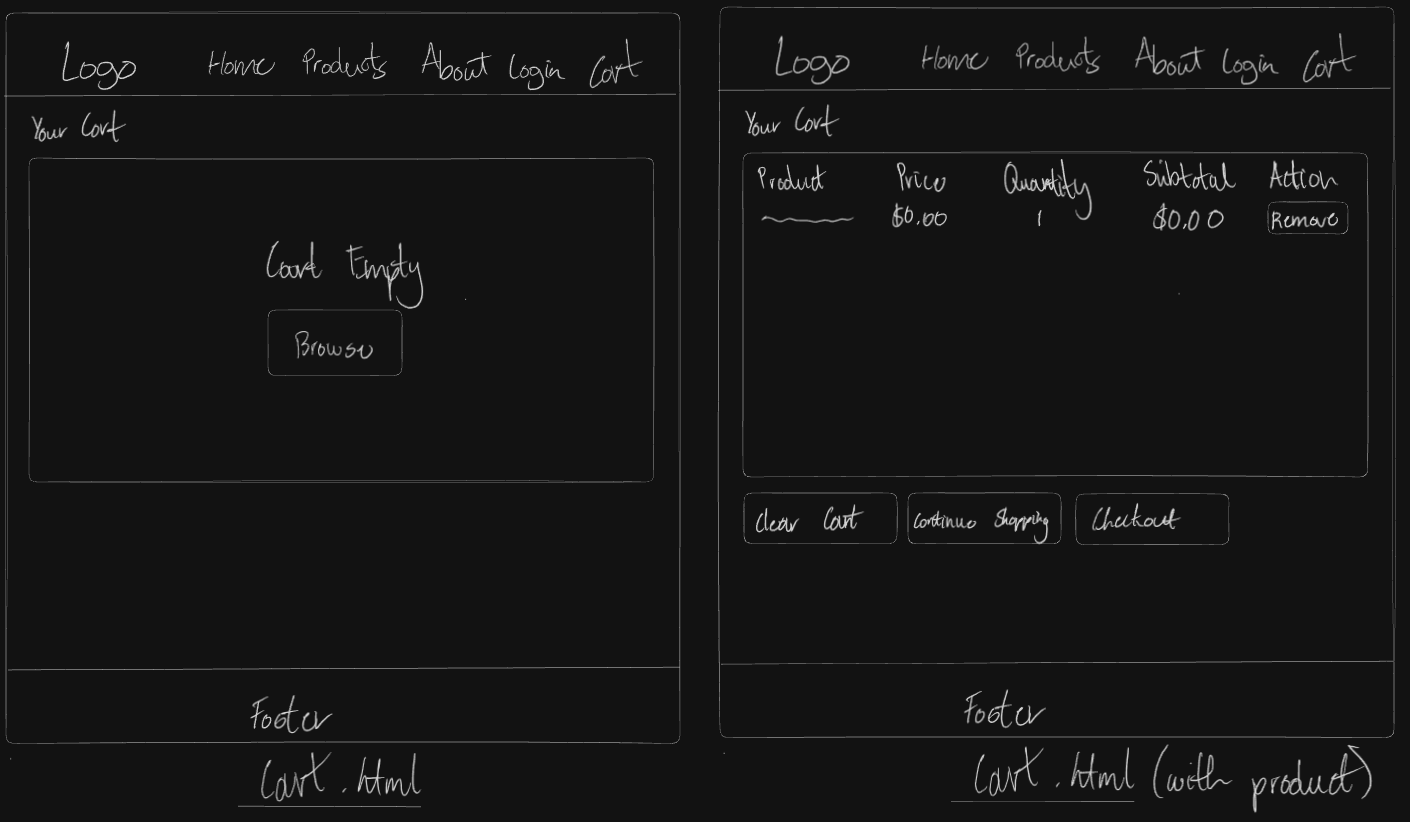 Logo Home Products About Login Cart
Your Cart
Cart Empty
Browse
Footer
Cart.html
Logo Home Products About Login Cart
Your Cart
Product Price Quantity Subtotal Action
$0.00 1 $0.00 Remove
Clear Cart Continue Shopping Checkout
Footer
Cart.html (with product)